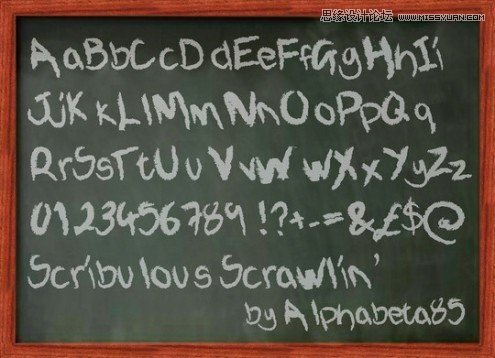 思缘设计论坛 WWW.MISSYUAN.COM
AaBbCcDdEeFfGgHhIi
JjKkLlMmNnOoPpQq
RrSsTtUuVvWwXxYyZz
0123456789 !?+-=&£$@
Scribulous Scrawlin'
by Alphabeta85